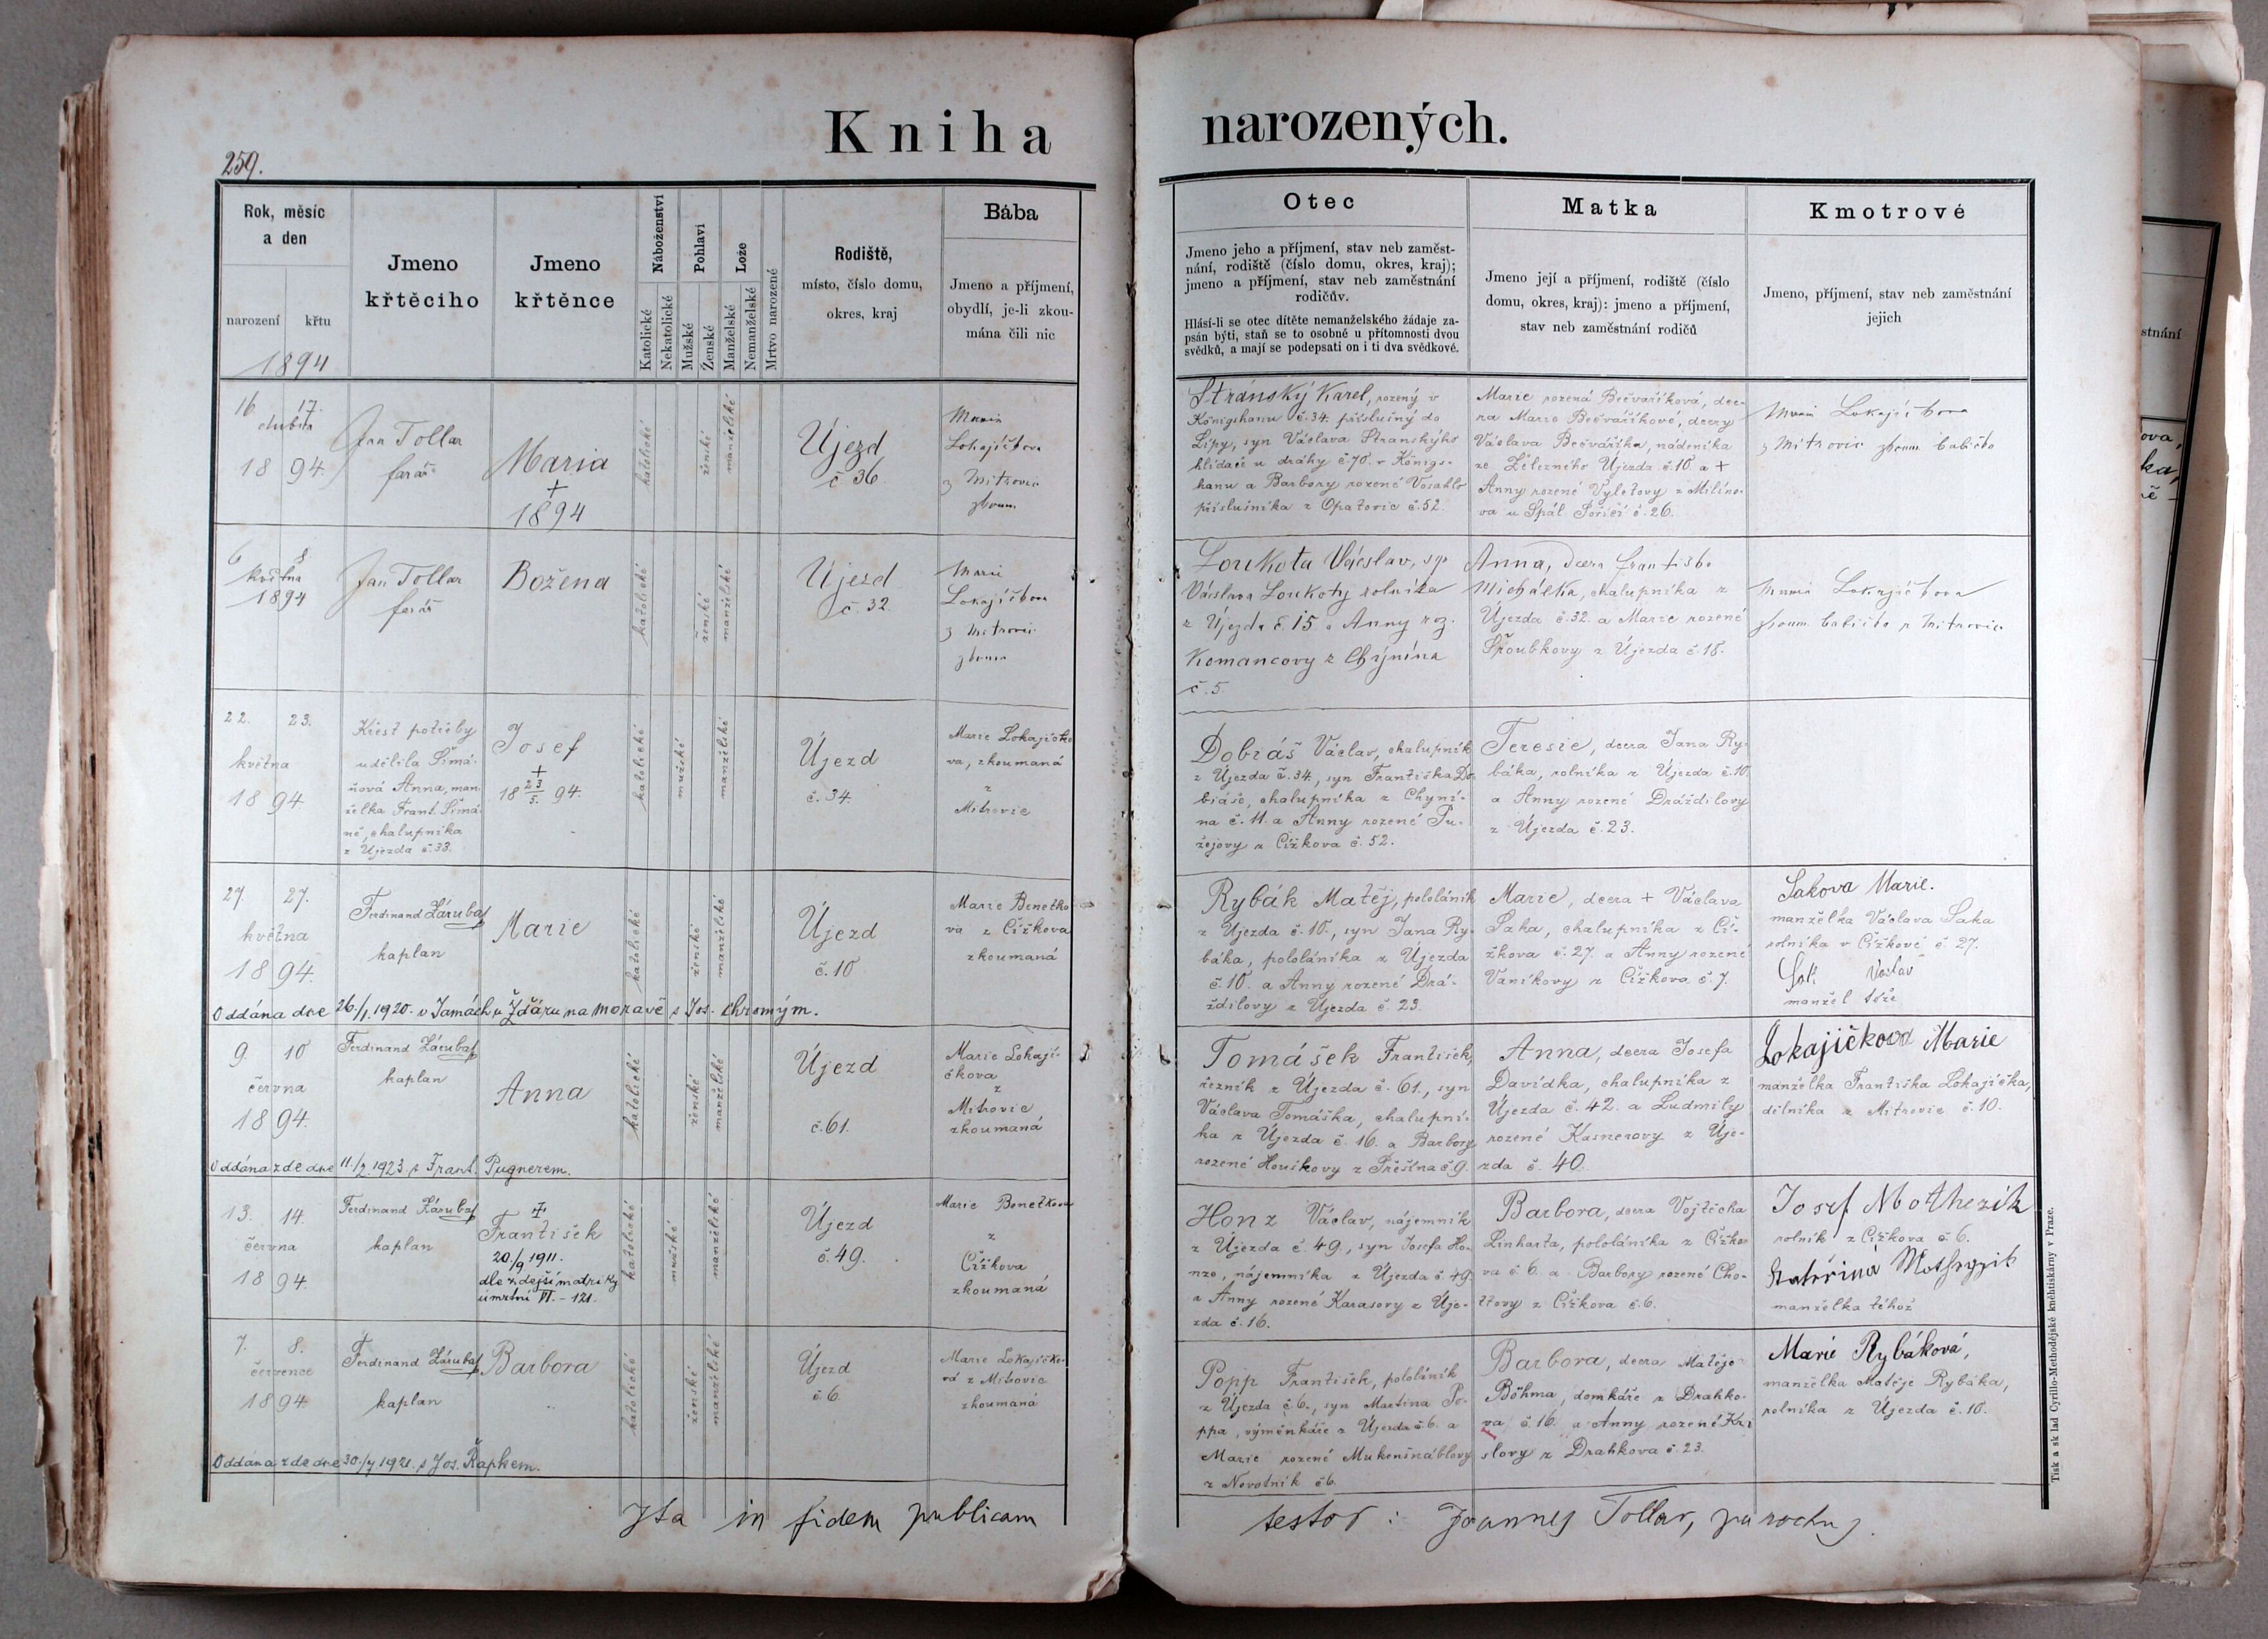 Kniha narozených.
259.
Rok, měsíc
a den
narození
křtu
1894
Jmeno
křtěcího
Jmeno
křtěnce
Náboženství
Katolické
Nekatolické
Pohlaví
Mužské
Ženské
Lože
Manželské
Nemanželské
Mrtvo narozené
Rodiště,
místo, číslo domu,
okres, kraj
Bába
Jmeno a příjmení,
obydlí, je-li zkou-
mána čili nic
Otec
Jmeno jeho a příjmení, stav neb zaměst-
nání, rodiště (číslo domu, okres, kraj);
jmeno a příjmení, stav neb zaměstnání
rodičův.
Hlásí-li se otec dítěte nemanželského žádaje za-
psán býti, staň se to osobně u přítomnosti dvou
svědků, a mají se podepsati on i ti dva svědkové.
Matka
Jmeno její a příjmení, rodiště (číslo
domu, okres, kraj): jmeno a příjmení,
stav neb zaměstnání rodičů
Kmotrové
Jmeno, příjmení, stav neb zaměstnání
jejich
16 17.
dubna
18 94.
Jan Tollar
farář
Maria
+
1894
katolické
ženské
manželské
Újezd
č 36.
Marie
Lokajíčkova
z Mitrovic
zkoum.
Stránský Karel, rozený v
Königshanu č.34. příslušný do
Lípy, syn Václava Stranskýho
hlídače u dráhy č 70. v Königs-
hanu a Barbory rozené Vosahlo
příslušníka z Opatovic č.52.
Marie rozená Bečvaříková, dce-
ra Marie Bečváříkové, dcery
Václava Bečváříka, nádeníka
ze Železného Újezda č.10. a +
Anny rozené Vyletovy z Milíno-
va u Spál. Poříčí č. 26.
Marie Lokajíčkova
z Mitrovic zkoum. babička
6 8
května
1894
Jan Tollar
farář
Božena
katolické
ženské
manželské
Újezd
č. 32.
Marie
Lokajíčkova
z Mitrovic
zkoum
Loukota Václav, syn
Václava Loukoty rolníka
z Újezda č. 15 a Anny roz.
Komancovy z Chýnína
č. 5.
Anna, dcera Frantiska
Michálka, chalupníka z
Újezda č.32. a Marie rozené
Skoubkovy z Újezda č.18.
Marie Lokajíčkova
zkoum. babička z Mitrovic
22. 23.
května
18 94.
Křest potřeby
udělila Šimá-
ňová Anna, man-
želka Frant. Šimá-
ně, chalupníka
z Újezda č.33.
Josef
+
18 23/5. 94.
katolické
mužské
manželské
Újezd
č. 34.
Marie Lokajíčko-
va, zkoumaná
z
Mitrovic
Dobiáš Václav, chalupník
z Újezda č.34., syn Františka Do-
biáše, chalupníka z Chyní-
na č. 11. a Anny rozené Pu-
žejovy z Čížkova č. 52.
Teresie, dcera Jana Ry-
báka, rolníka z Újezda č.10.
a Anny rozené Dráždilovy
z Újezda č.23.
27. 27.
května
18 94.
Ferdinand Záruba
kaplan
Marie
katolické
ženské
manželské
Újezd
č. 10
Marie Benetko-
va z Čížkova
zkoumaná
Rybák Matěj, pololáník
z Újezda č.10., syn Jana Ry-
báka, pololáníka z Újezda
č.10. a Anny rozené Drá-
ždilovy z Újezda č. 23.
Marie, dcera + Václava
Saka, chalupníka z Čí-
žkova č. 27. a Anny rozené
Vaníkovy z Čížkova č. 7.
Sakova Marie.
manželka Václava Saka
rolníka v Čížkově č. 27.
Sak Václav
manžel též
Oddána dne 26./1. 1920. v Jamách u Žďáru na Moravě s Jos. Chromým.
9 10
června
18 94.
Ferdinand Záruba
kaplan
Anna
katolické
ženské
manželské
Újezd
č.61.
Marie Lokají-
čkova
z
Mitrovic,
zkoumaná
Tomášek František,
řezník z Újezda č. 61., syn
Václava Tomáška, chalupní-
ka z Újezda č. 16. a Barbory
rozené Houškovy z Přeštna č.9.
Anna, dcera Josefa
Davídka, chalupníka z
Újezda č. 42. a Ludmily
rozené Kasnerovy z Úje-
zda č. 40.
Lokajíčkova Marie
manželka Františka Lokajíčka,
dělníka z Mitrovic č.10.
Oddána zde dne 11./2. 1923. s Frant. Pugnerem.
13. 14.
června
18 94.
Ferdinand Záruba
kaplan
+
František
20./9. 1911.
dle zdejší matriky
úmrtní VI. – 121.
katolické
mužské
manželské
Újezd
č. 49.
Marie Benetkova
z
Čížkova
zkoumaná
Honz Václav, nájemník
z Újezda č 49., syn Josefa Ho-
nze, nájemníka z Újezda č. 49.
a Anny rozené Karasovy z Úje-
zda č. 16.
Barbora, dcera Vojtěcha
Linharta, pololáníka z Čížko-
va č 6. a Barbory rozené Cho-
ttovy z Čížkova č.6.
Josef Mothezík
rolník z Čížkova č 6.
Kateřina Mothzyik
manželka téhož
7. 8.
července
18 94
Ferdinand Záruba
kaplan
Barbora
katolické
ženské
manželské
Újezd
č 6.
Marie Lokajíčko-
vá z Mitrovic
zkoumaná
Popp František, pololáník
z Újezda č.6., syn Martina Po-
ppa, výměnkáře z Újezda č 6. a
Marie rozené Mukenšnáblovy
z Novotník č 6.
Barbora, dcera Matěje
Böhma, domkáře z Drahko-
va č. 16. a Anny rozené Kri-
slovy z Drahkova č 23.
Marie Rybáková,
manželka Matěje Rybáka,
rolníka z Újezda č. 10.
Oddána zde dne 30./7 1921. s Jos. Řapkem.
Ita in fidem publicam
testor: Joannes Tollar, parochus.
Tisk a sklad Cyrillo-Methodějské kněhtiskárny v Praze.
stnání